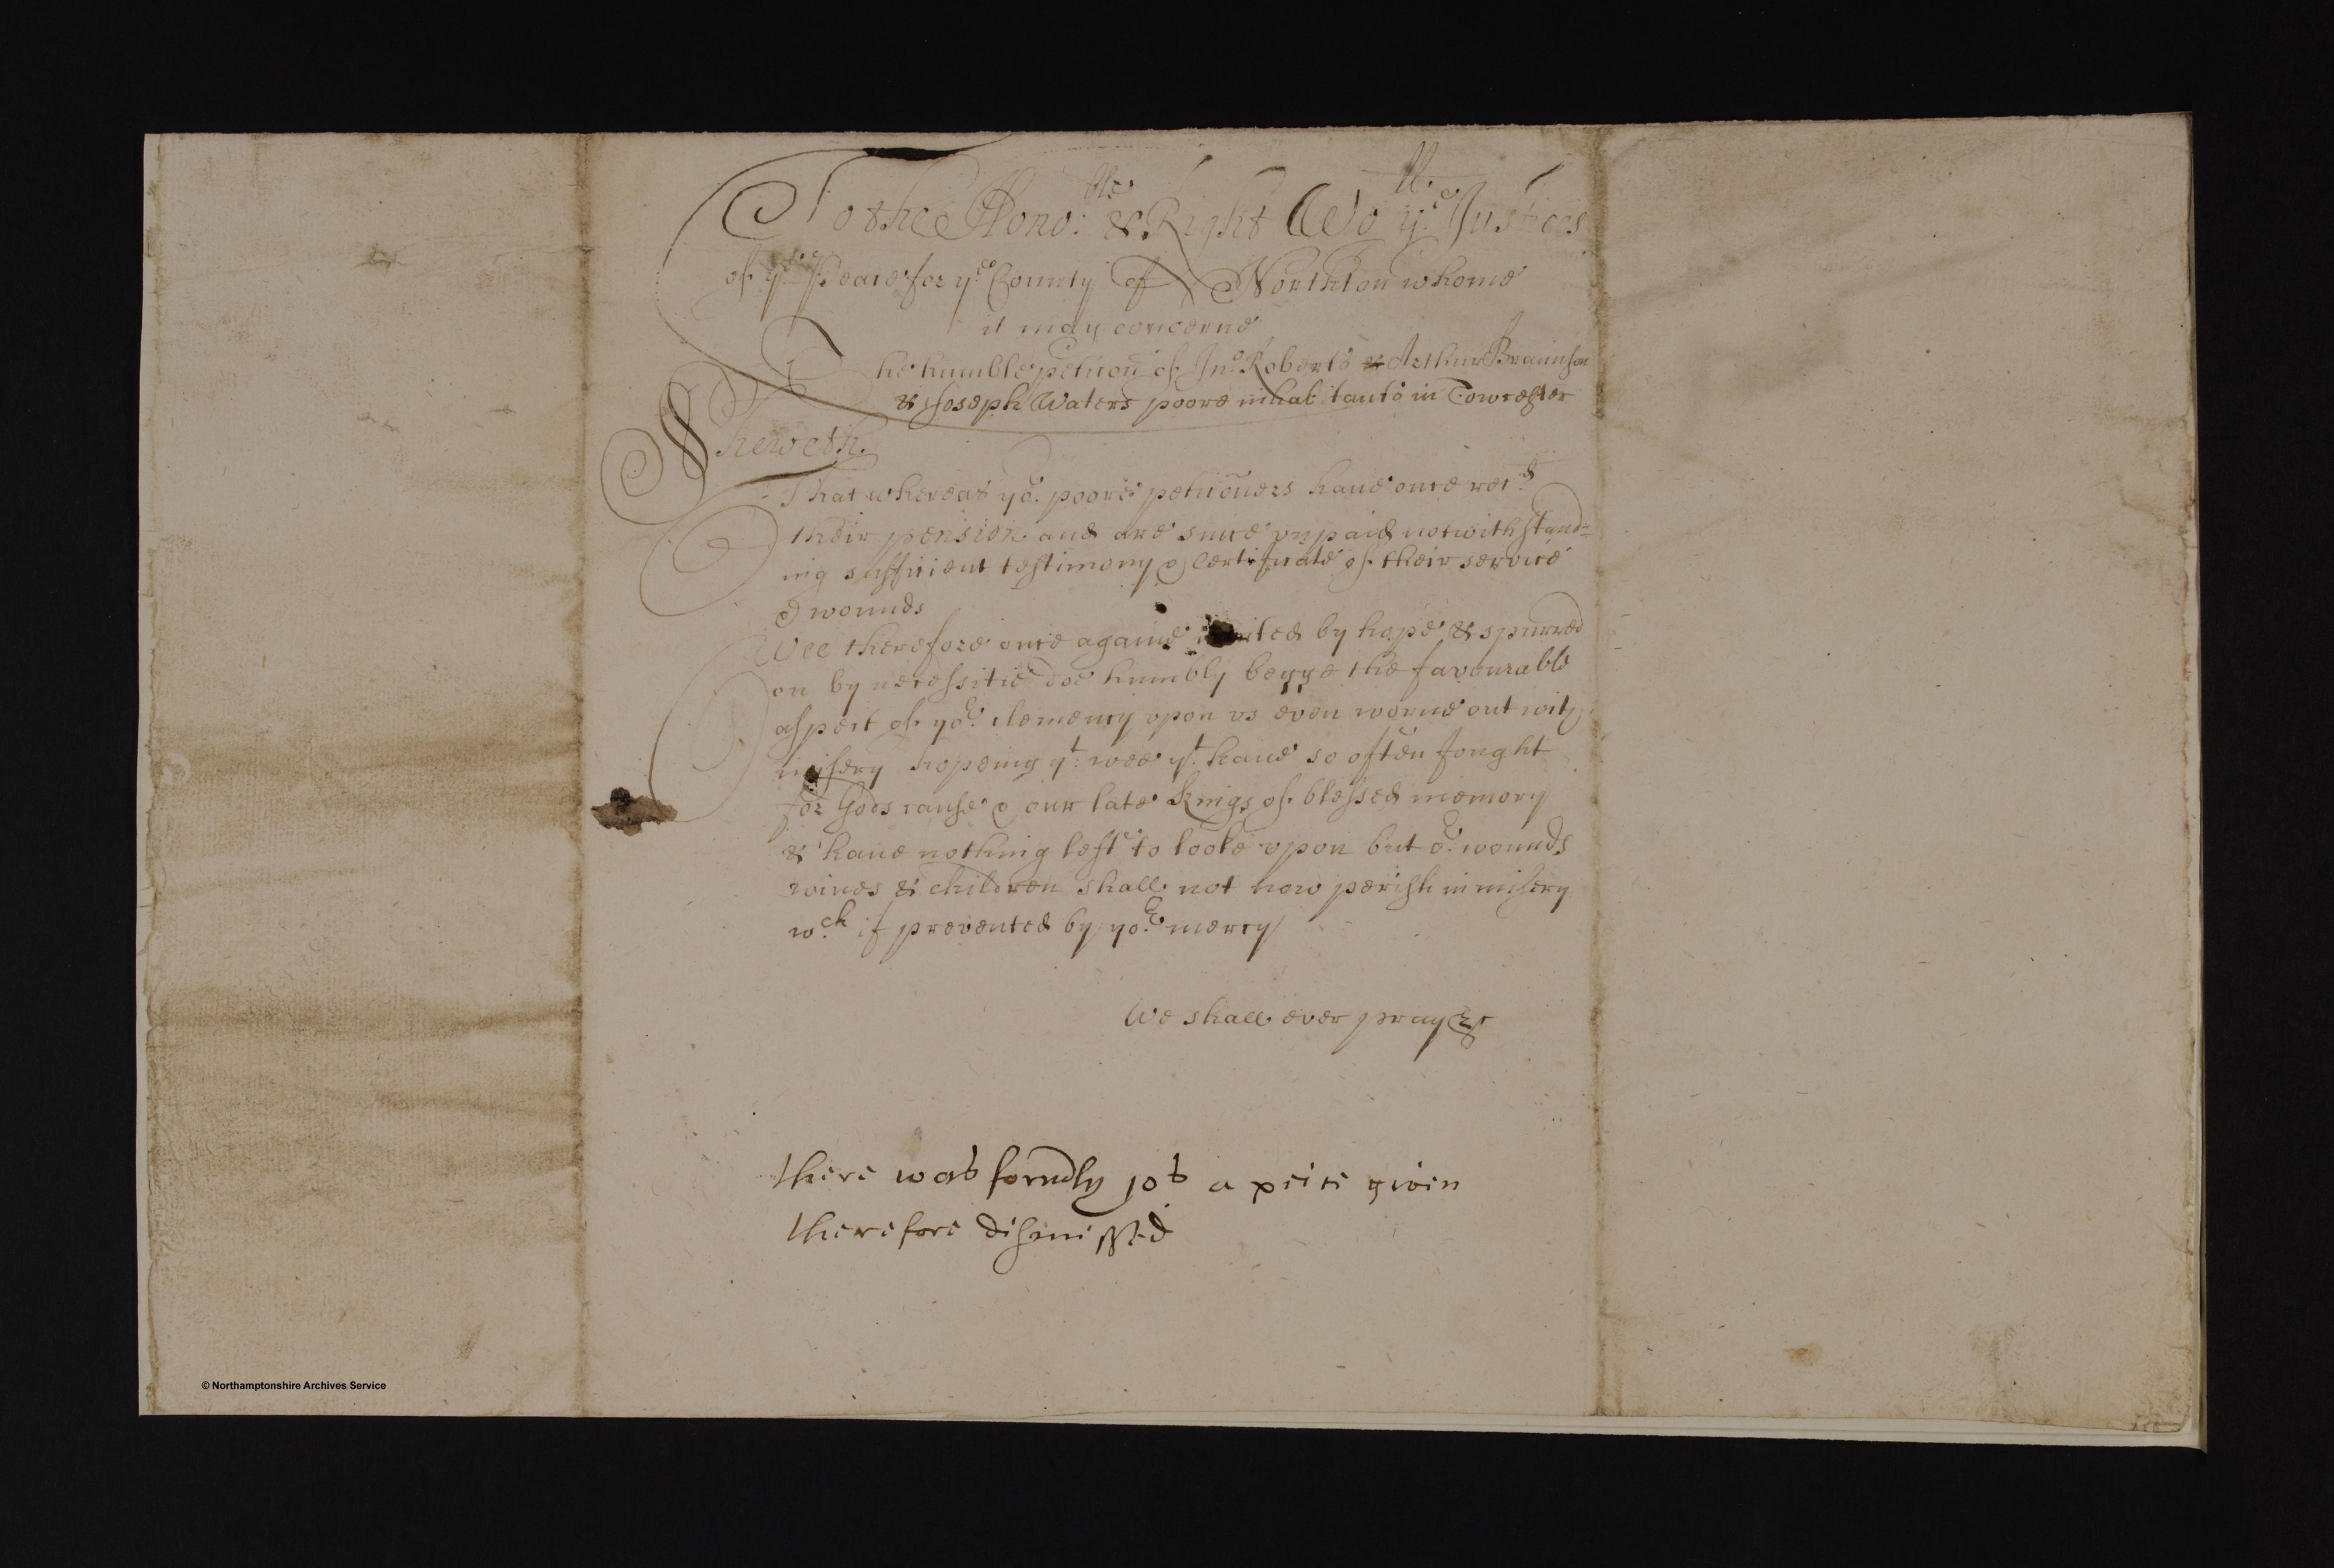 To the Hono:ble & Right Wo:ll ye Justices
of ye Peace for ye County of Northton whome
it may concerne
The humble petition of Jno Roberts & Arthur Braunson
& Joseph Waters poore inhabitants in Towcester
Sheweth
That whereas yor poore petitioners haue once recd
their pension and are since vnpaid notwithstand=
ing suffitient testimony & Certificate of their service
& wounds
Wee therefore once againe invited by hope & spurred
on by necessitie doe humbly begge the favourable
aspect of yor clemency vpon vs even worne out with
misery hopeing yt wee yt haue so often fought
for Gods cause & our late Kings of blessed memory
& haue nothing left to looke vpon but or wounds
wiues & children shall not now perish in misery
wch if prevented by yor mercy
We shall ever pray &c
there was formerly 10s a peice given
therefore dismissed
© Northamptonshire Archives Service